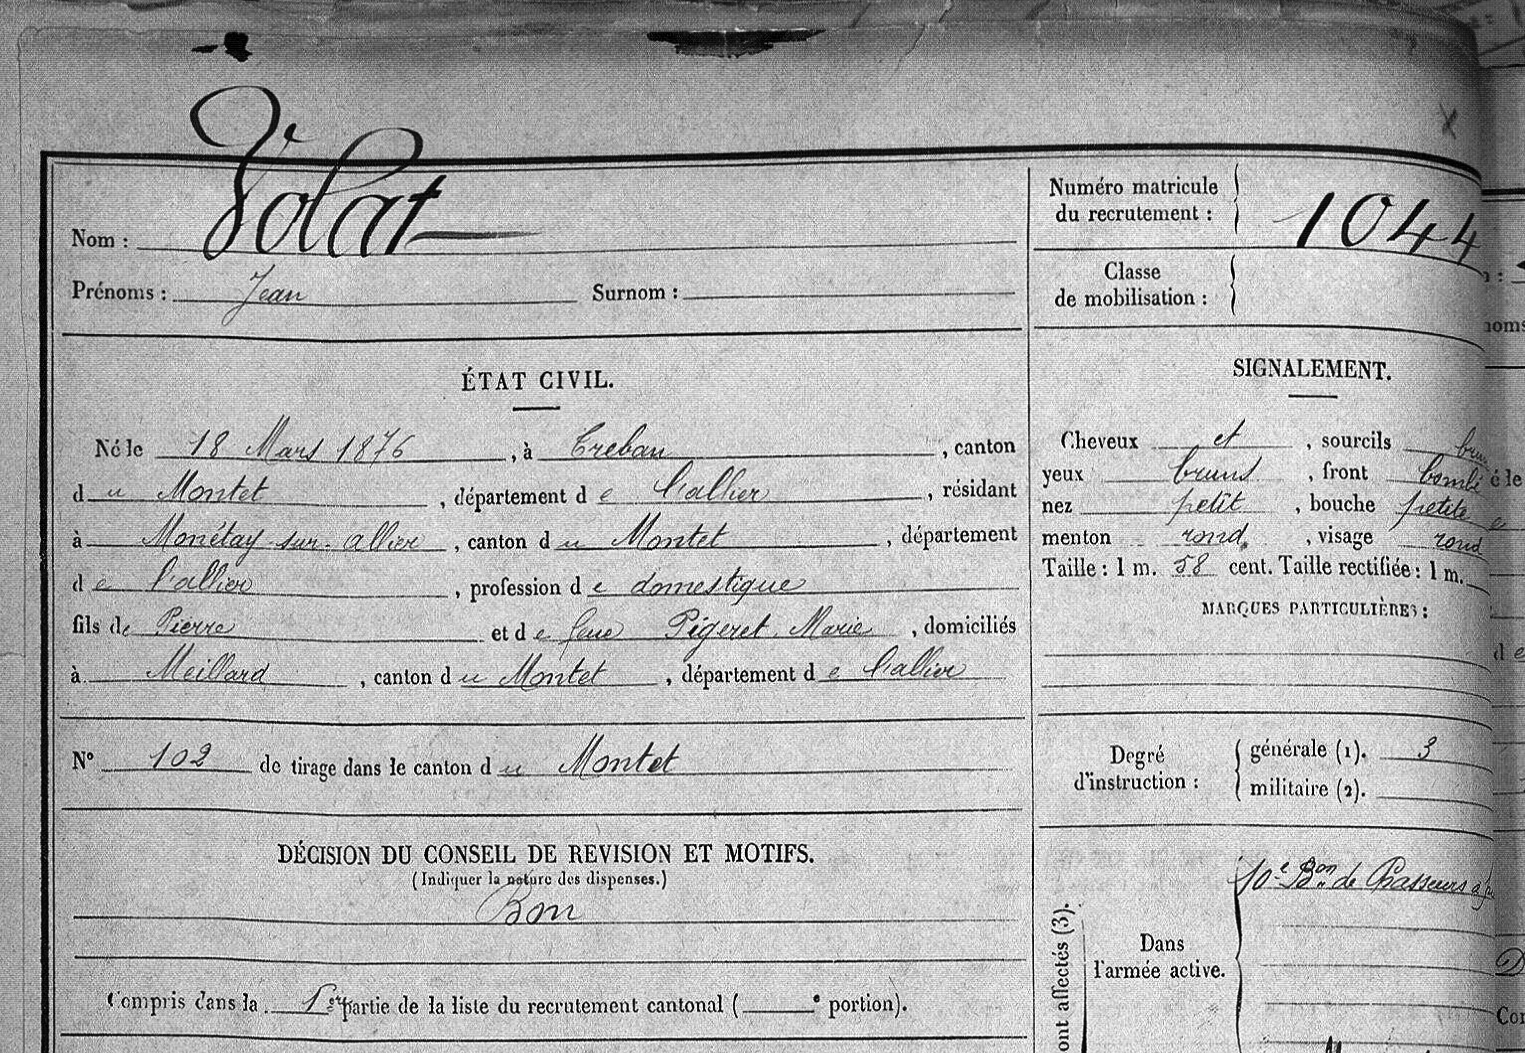 Nom : Volat
Prénoms : Jean Surnom :
Numéro matricule
du recrutement : 1044
Classe
de mobilisation :
ÉTAT CIVIL.
Né le 18 Mars 1876, à Treban, canton
du Montet, département de l'allier, résidant
à Monétay-sur-allier, canton du Montet, département
de l'allier, profession de domestique
fils de Pierre et de feue Pigeret Marie, domiciliés
à Meillard, canton du Montet, département de l'allier
N° 102 de tirage dans le canton du Montet
DÉCISION DU CONSEIL DE REVISION ET MOTIFS.
(Indiquer la nature des dispenses.)
Bon
Compris dans la 1ère partie de la liste du recrutement cantonal ( e portion).
SIGNALEMENT.
Cheveux et, sourcils
yeux bruns, front bombé
nez petit, bouche petite
menton rond, visage rond
Taille : 1 m. 58 cent. Taille rectifiée : 1 m.
MARQUES PARTICULIÈRES :
Degré
d'instruction :
générale (1). 3
militaire (2).
ont affectés (3).
Dans
l'armée active.
10e Bon de Chasseurs à